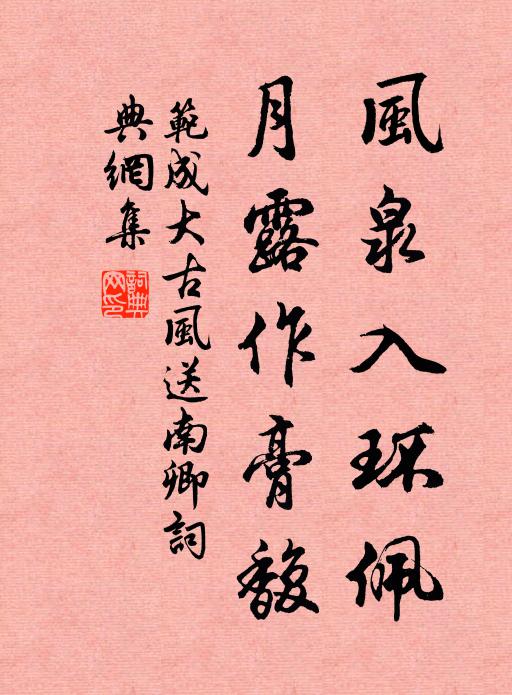 風泉入环佩
月露作膏馥
範成大古風送南卿詞
典網集
詞典
网印